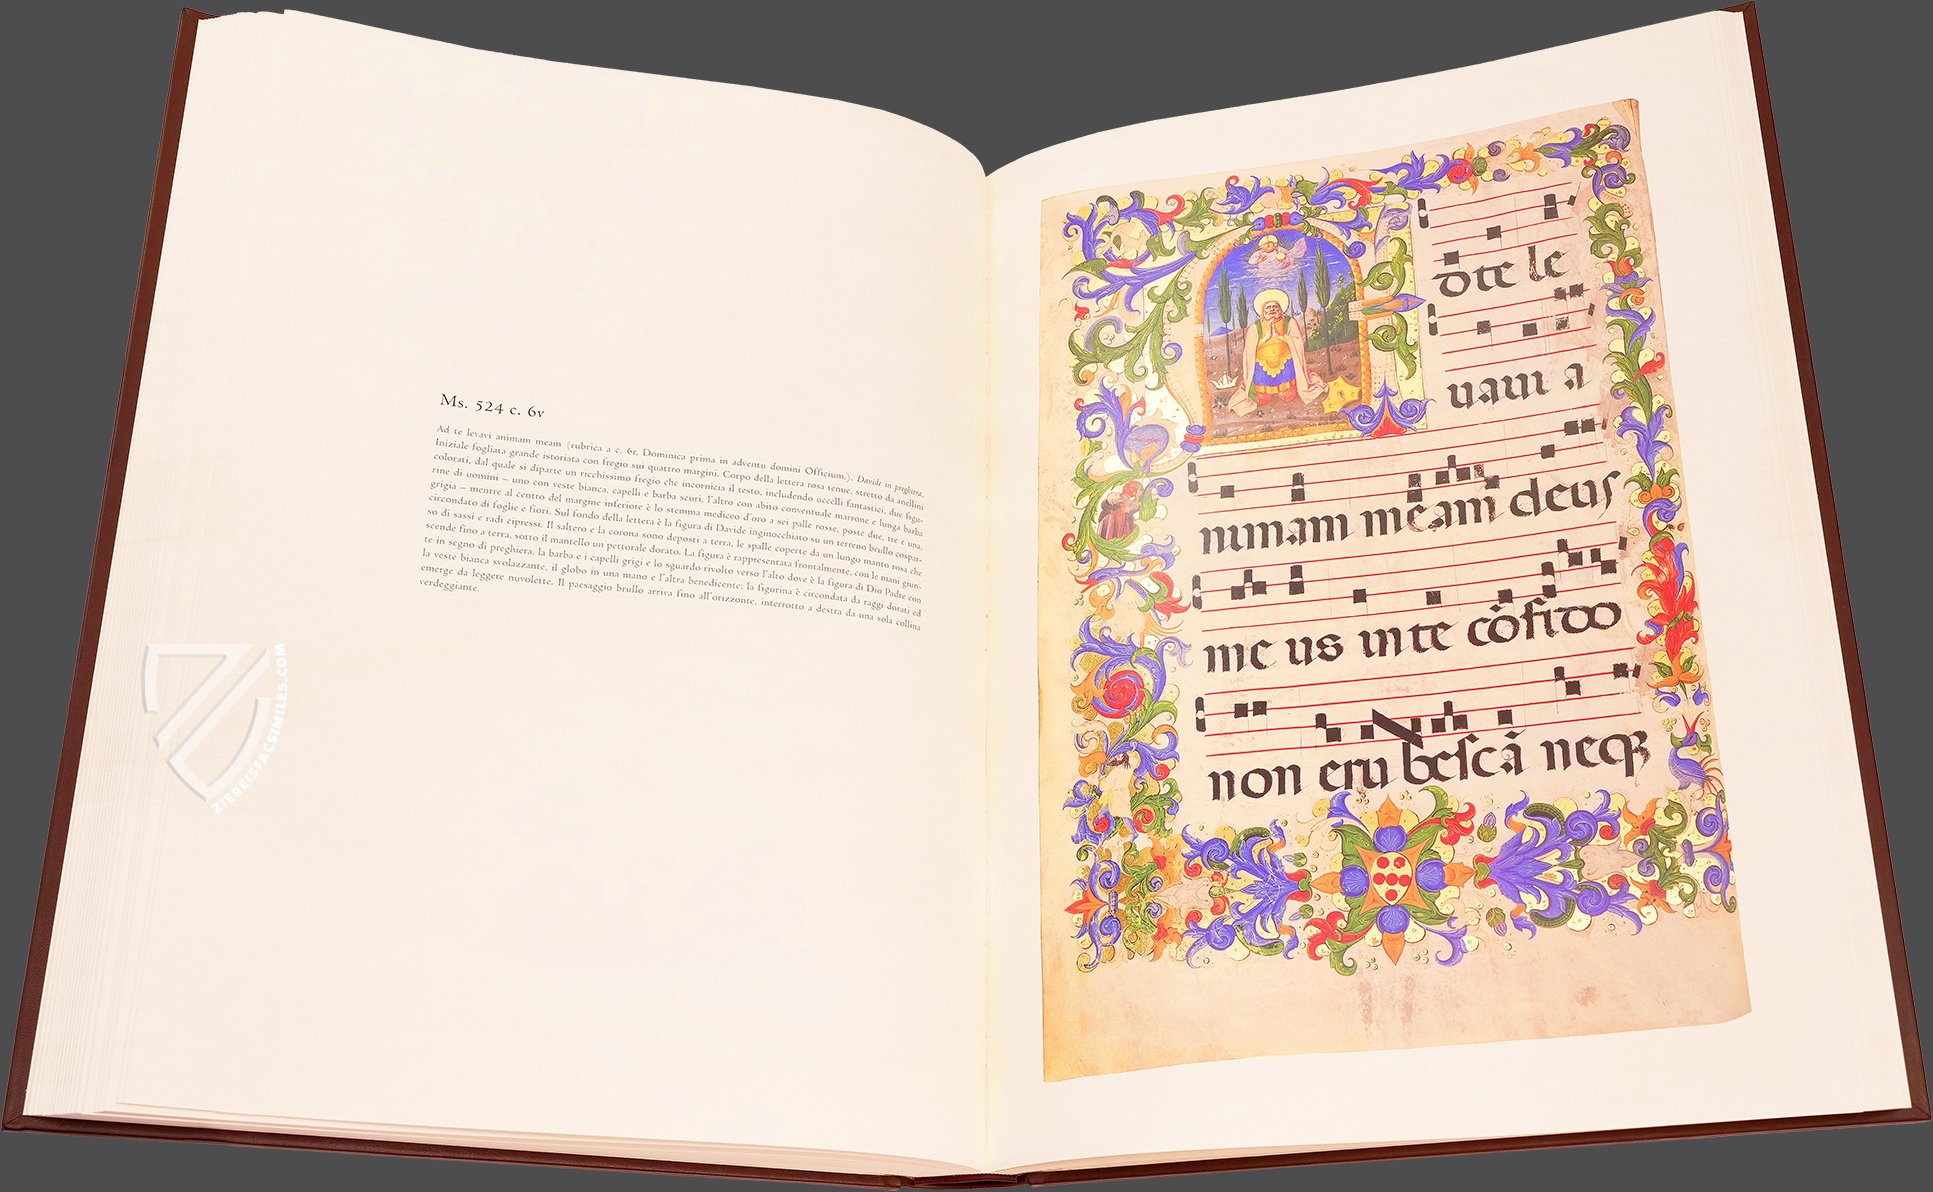 Ms. 524 c. 6v
Ad te levavi animam meam (rubrica a c. 6r. Dominica prima in adventu domini Officium.). Davide in preghiera.
Iniziale fogliata grande istoriata con fregio sui quattro margini. Corpo della lettera rosa tenue, stretto da anellini
colorati, dal quale si diparte un ricchissimo fregio che incornicia il testo, includendo uccelli fantastici, due figu-
rine di uomini – uno con veste bianca, capelli e barba scuri, l'altro con abito conventuale marrone e lunga barba
grigia – mentre al centro del margine inferiore è lo stemma mediceo d'oro a sei palle rosse, poste due, tre e una,
circondato di foglie e fiori. Sul fondo della lettera è la figura di Davide inginocchiato su un terreno brullo cospar-
so di sassi e radi cipressi. Il saltero e la corona sono deposti a terra, le spalle coperte da un lungo manto rosa che
scende fino a terra, sotto il mantello un pettorale dorato. La figura è rappresentata frontalmente, con le mani giun-
te in segno di preghiera, la barba e i capelli grigi e lo sguardo rivolto verso l'alto dove è la figura di Dio Padre con
la veste bianca svolazzante, il globo in una mano e l'altra benedicente; la figurina è circondata da raggi dorati ed
emerge da leggere nuvolette. Il paesaggio brullo arriva fino all'orizzonte, interrotto a destra da una sola collina
verdeggiante.
ZIEREISFACSIMILES.COM
A
d te le
uaui a
nimam meam deus
me us in te cōfido
non eru bescā neqꝫ